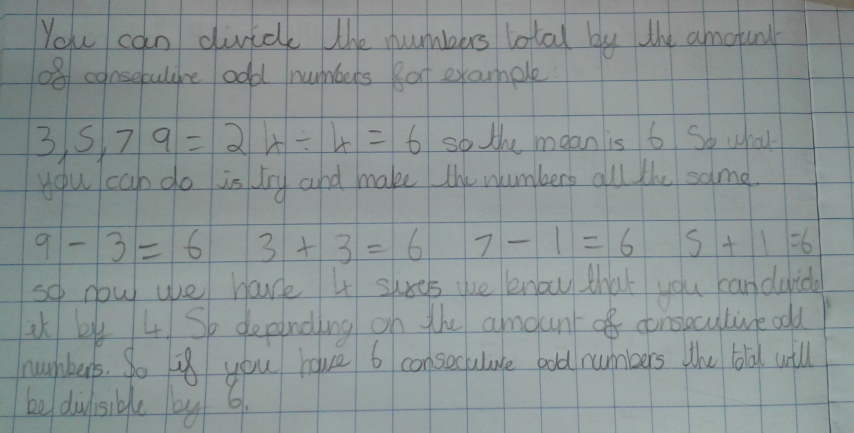 You can divide the numbers total by the amount
of consecutive odd numbers for example.
3, 5, 7 9 = 24 ÷ 4 = 6 so the mean is 6. So what
you can do is try and make the numbers all the same.
9 - 3 = 6 3 + 3 = 6 7 - 1 = 6 5 + 1 = 6
so now we have 4 sixes we know that you can divide
it by 4. So depending on the amount of consecutive odd
numbers. So if you have 6 consecutive odd numbers the total will
be divisible by 6.